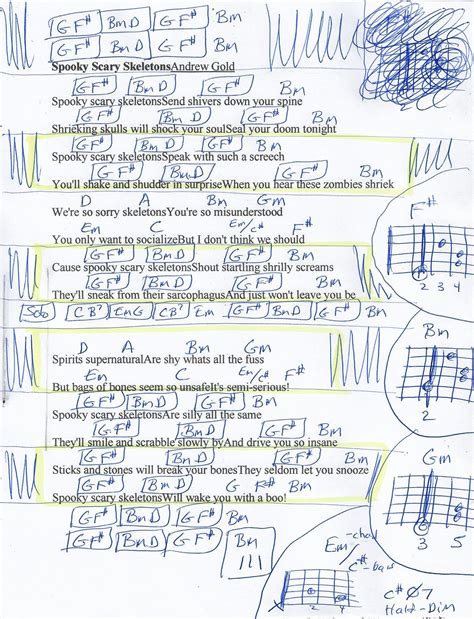 G F# Bm D G F# Bm
G F# Bm D G F# Bm
Spooky Scary SkeletonsAndrew Gold
G F# Bm D G F# Bm
Spooky scary skeletonsSend shivers down your spine
G F# Bm D G F# Bm
Shrieking skulls will shock your soulSeal your doom tonight
G F# Bm D G F# Bm
Spooky scary skeletonsSpeak with such a screech
G F# Bm D G F# Bm
You'll shake and shudder in surpriseWhen you hear these zombies shriek
D A Bm Gm
We're so sorry skeletonsYou're so misunderstood
Em C Em/C# F#
You only want to socializeBut I don't think we should
G F# Bm D G F# Bm
Cause spooky scary skeletonsShout startling shrilly screams
G F# Bm D G F# Bm
They'll sneak from their sarcophagusAnd just won't leave you be
Solo C B7 Em G C B7 Em G F# Bm D G F# Bm
D A Bm Gm
Spirits supernaturalAre shy whats all the fuss
Em C Em/C# F#
But bags of bones seem so unsafeIt's semi-serious!
G F# Bm D G F# Bm
Spooky scary skeletonsAre silly all the same
G F# Bm D G F# Bm
They'll smile and scrabble slowly byAnd drive you so insane
G F# Bm D G F# Bm
Sticks and stones will break your bonesThey seldom let you snooze
G F# Bm D G F# Bm
Spooky scary skeletonsWill wake you with a boo!
G F# Bm D G F# Bm
G F# Bm D G F# Bm
F#
2 3 4
Bm
2
Gm
3 5
Em -chord
/
C# -bass
2 4
C#ø7
Half-Dim